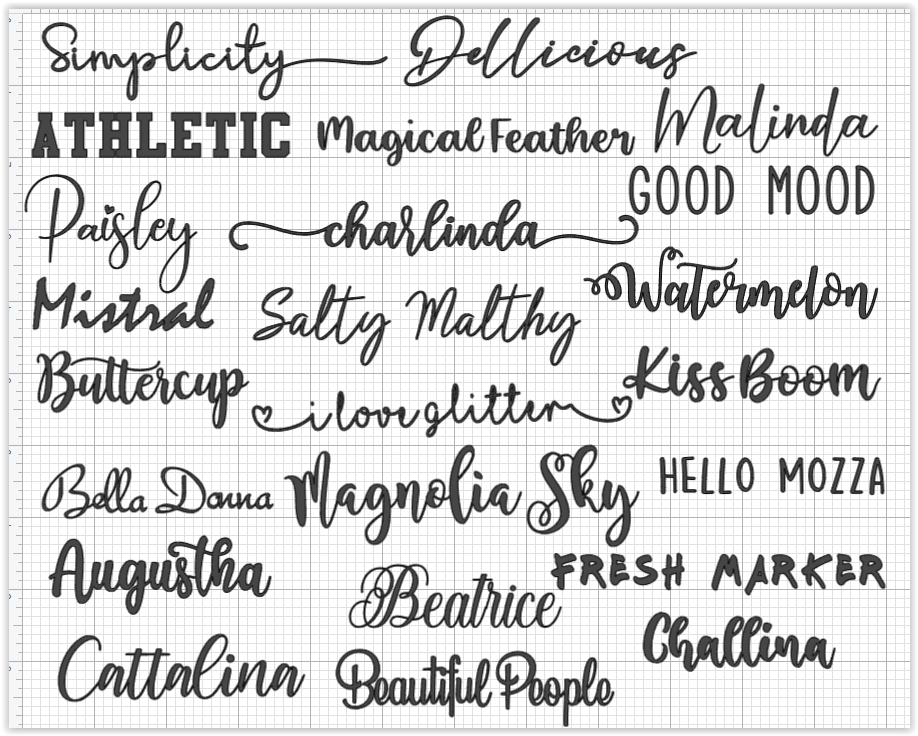 Simplicity
Dellicious
ATHLETIC
Magical Feather
Malinda
GOOD MOOD
Paisley
charlinda
Watermelon
Mistral
Salty Malthy
Buttercup
i love glitter
Kiss Boom
Bella Donna
Magnolia Sky
HELLO MOZZA
Augustha
Beatrice
FRESH MARKER
Challina
Cattalina
Beautiful People